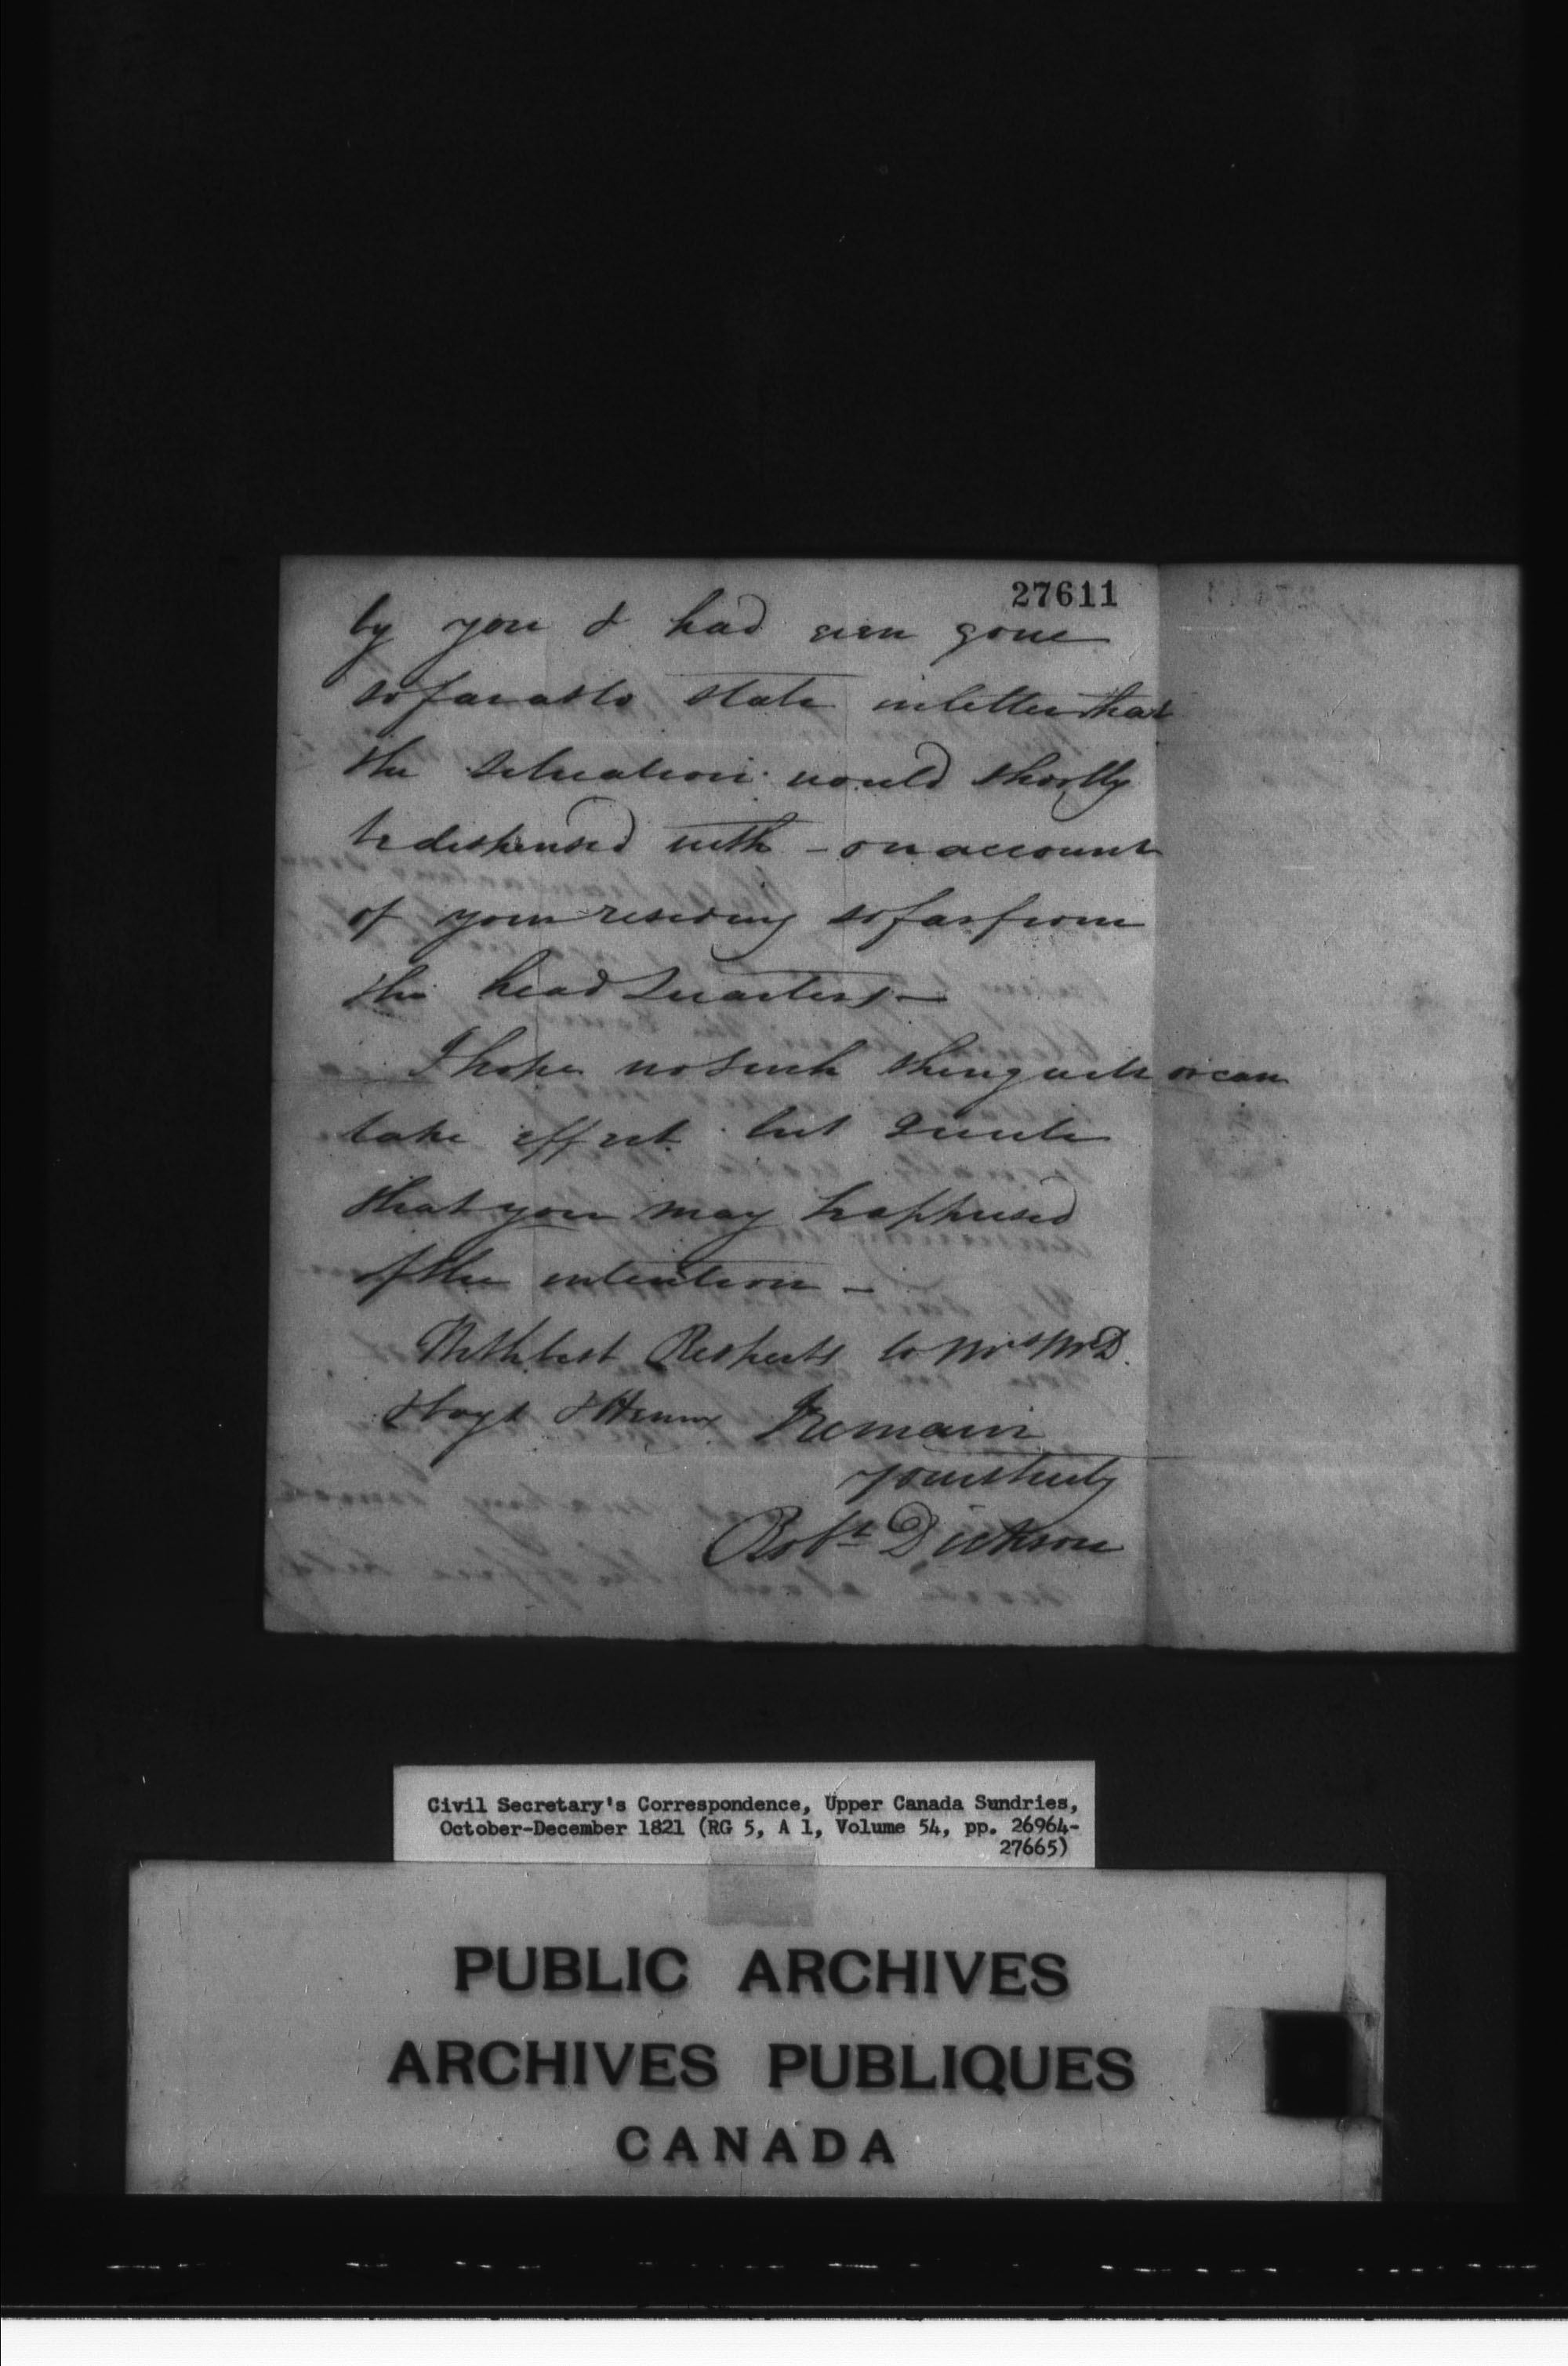 27611
by you & had even gone
so far as to state in letter that
the situation would shortly
be dispensed with - on account
of your residing so far from
the head Quarters -
I hope no such thing will or can
take effect but
that you may be apprised
of the intention -
With best Respects to Mrs McD.
& Henry I remain
yours truly
Robt Dickson
Civil Secretary's Correspondence, Upper Canada Sundries,
October-December 1821 (RG 5, A 1, Volume 54, pp. 26964-
27665)
PUBLIC ARCHIVES
ARCHIVES PUBLIQUES
CANADA